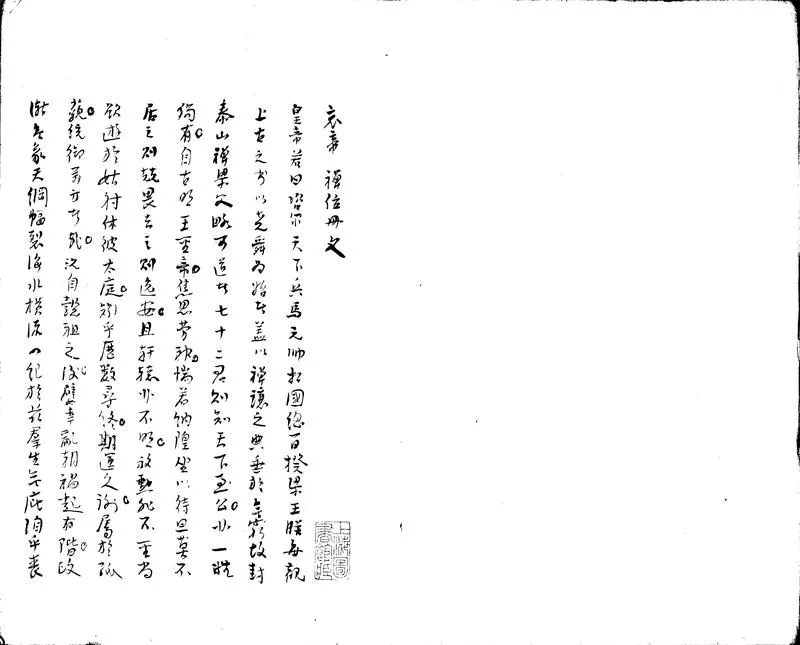 哀帝 禪位冊文
皇帝若曰咨尓天下兵馬元帥相國總百揆梁王朕每觀
上古之书以堯舜为始者蓋以禪讓之典垂於無窮故封
泰山禪梁父略可道者七十二君則知天下至公非一姓
獨有自古明王聖帝焦思勞神惴若納隍坐以待旦莫不
居之則兢畏去之則逸安且軒轅非不明放勳非不聖尚
欲遊於姑射休彼太庭矧乎歷數尋終期運久謝屬於孤
藐統御萬方者哉況自懿祖之後嬖幸亂朝禍起有階政
漸無象天綱幅裂海水橫流四紀於茲羣生無庇洎乎喪
上海圖書館藏